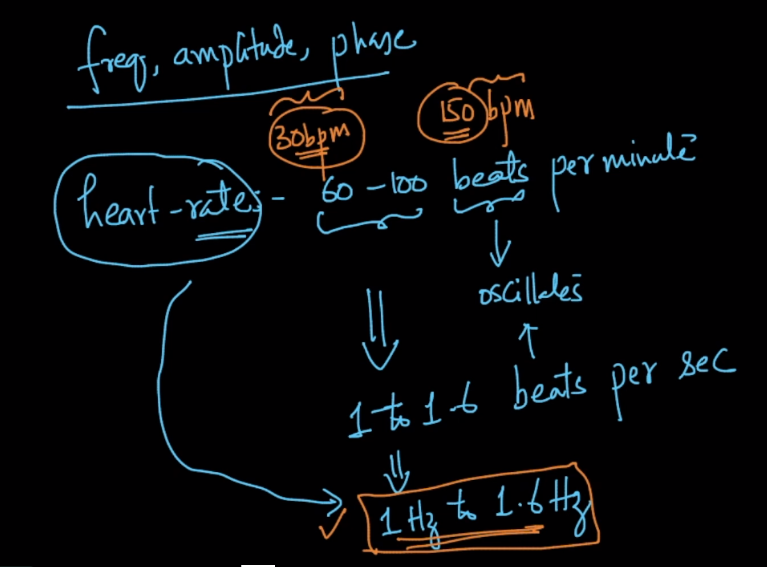 freq, amplitude, phase
30bpm 150 bpm
heart-rate: - 60 - 100 beats per minute
oscillates
1 to 1.6 beats per sec
1 Hz to 1.6 Hz